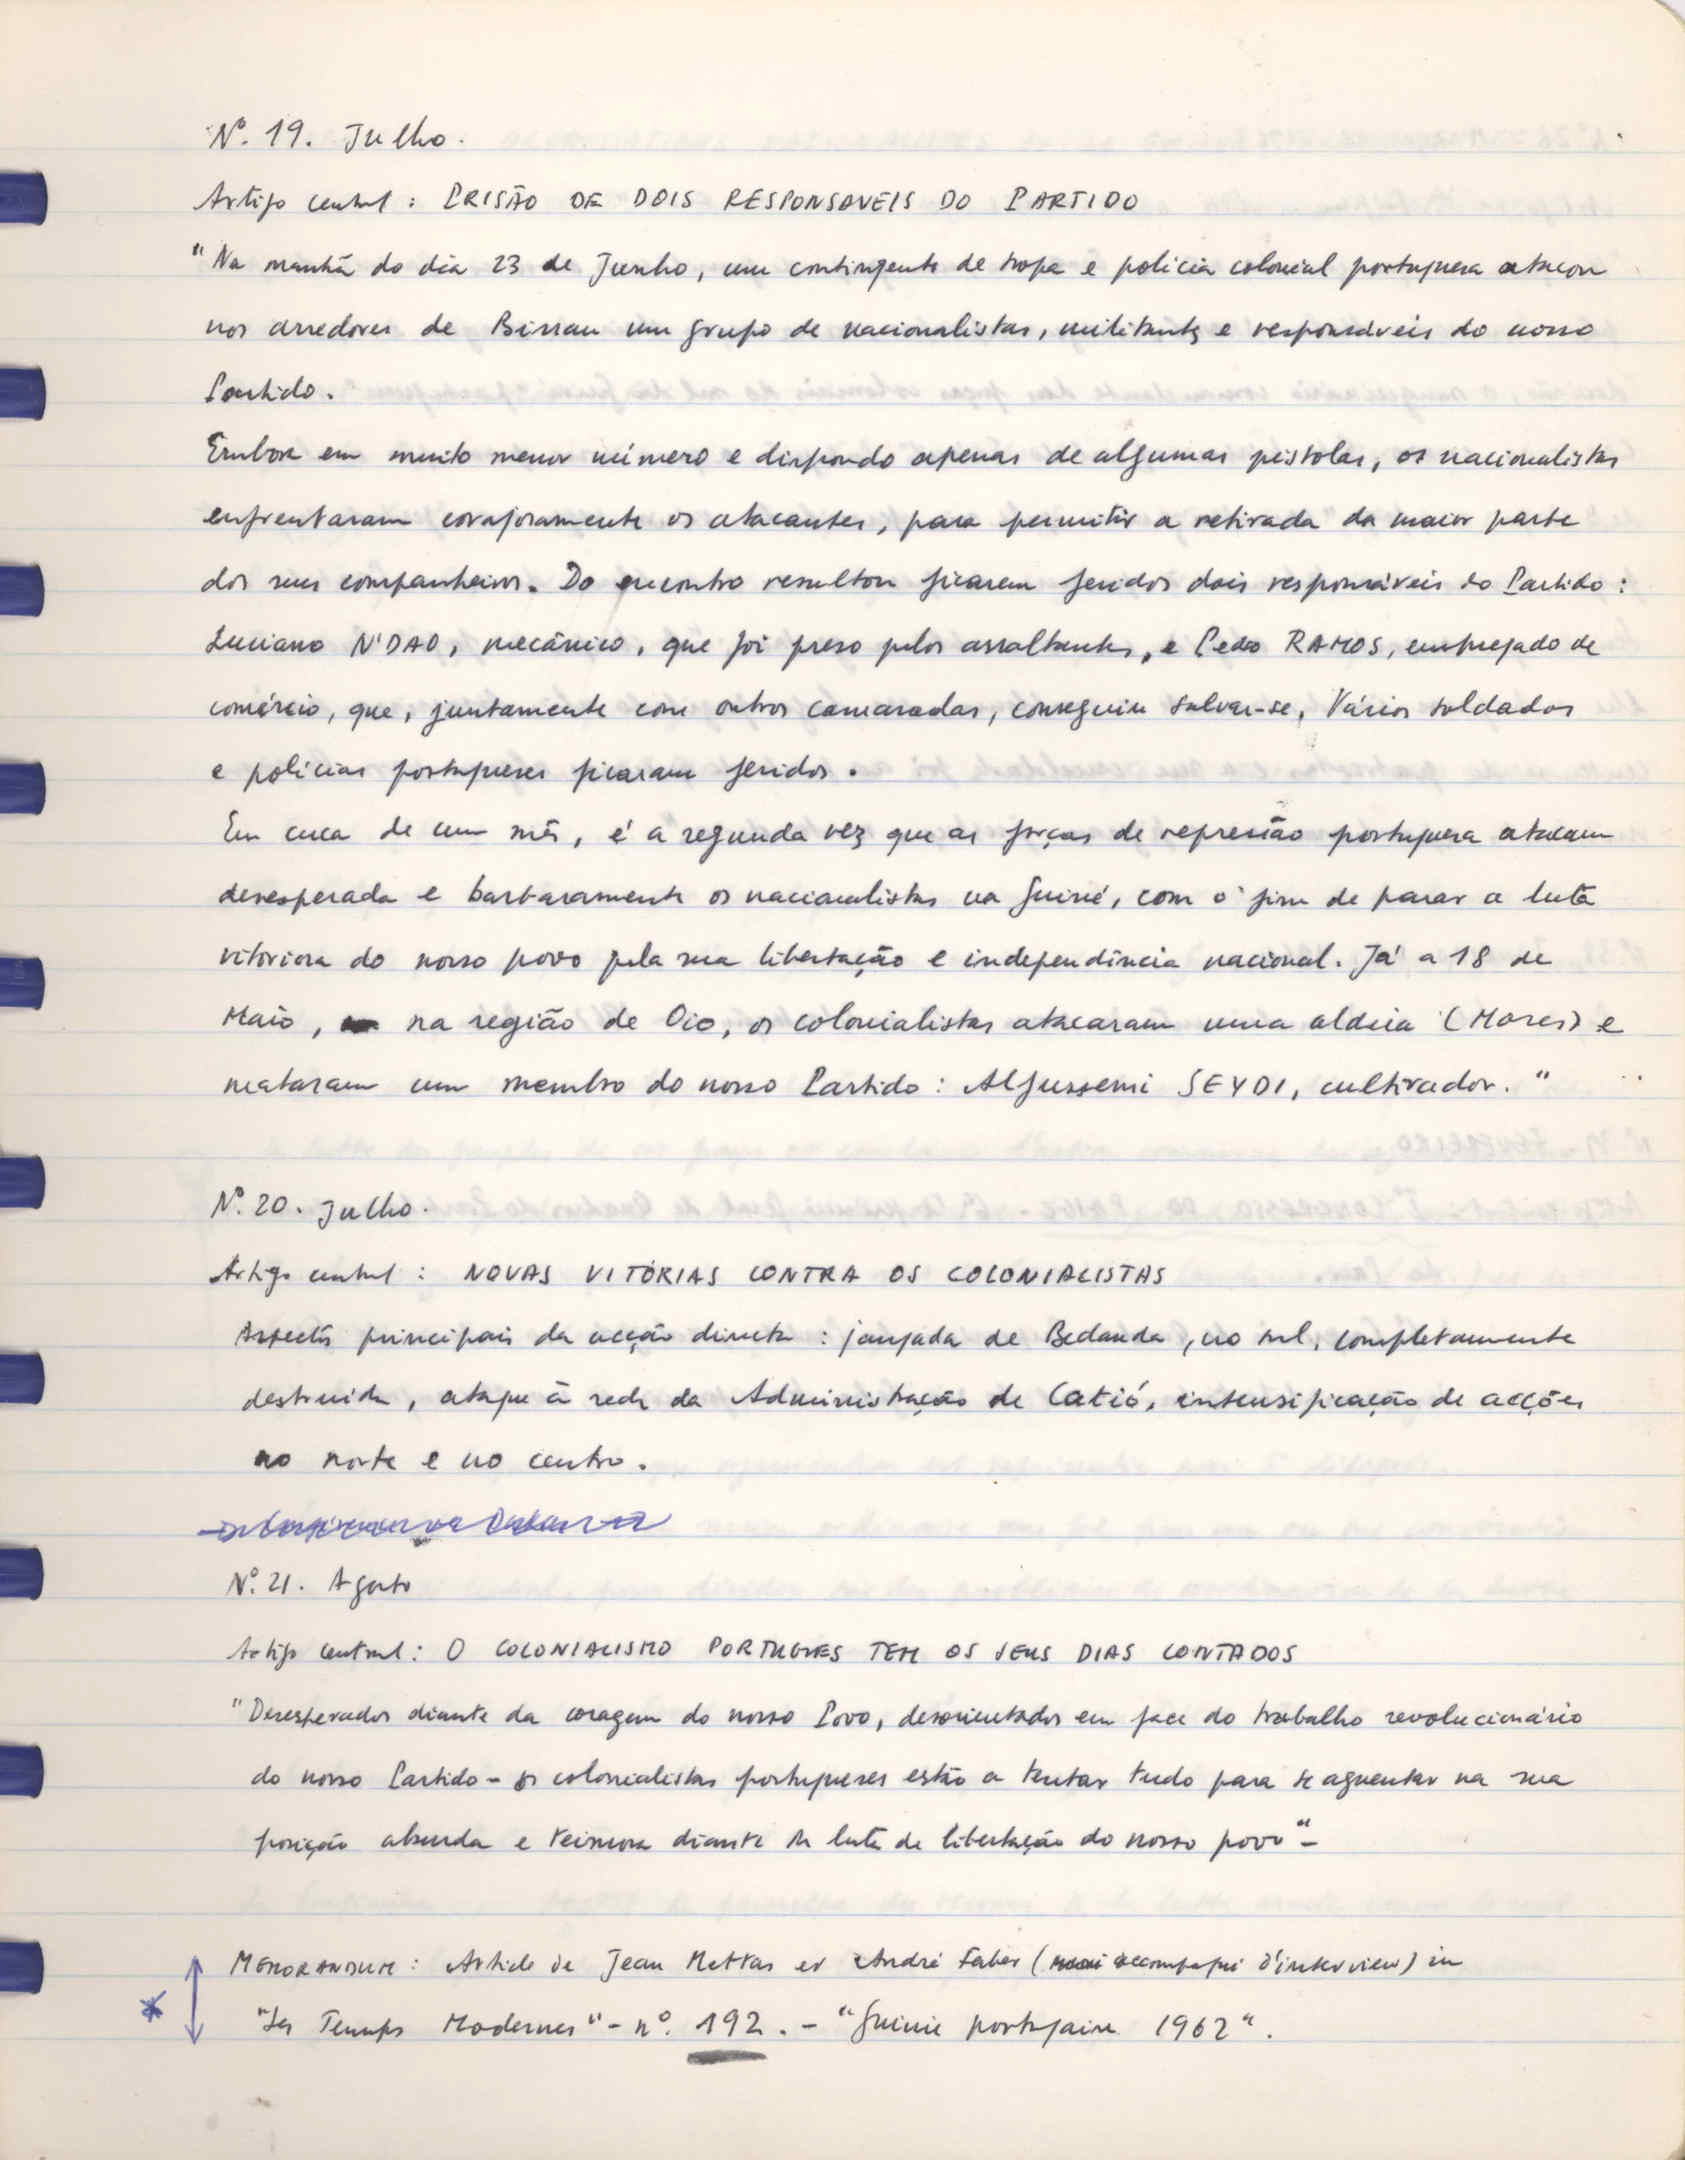 Nº. 19. Julho.
Artigo central : PRISÃO DE DOIS RESPONSAVEIS DO PARTIDO
"Na manhã do dia 23 de Junho, um contingente de tropa e policia colonial portuguesa atacou
nos arredores de Bissau um grupo de nacionalistas, militantes e responsáveis do nosso
Partido.
Embora em muito menor número e dispondo apenas de algumas pistolas, os nacionalistas
enfrentaram corajosamente os atacantes, para permitir a retirada da maior parte
dos seus companheiros. Do encontro resultou ficarem feridos dois responsáveis do Partido :
Luciano N'DAO, mecânico, que foi preso pelos assaltantes, e Pedro RAMOS, empregado de
comércio, que, juntamente com outros camaradas, conseguiu salvar-se, Vários soldados
e polícias portugueses ficaram feridos.
Em cerca de um mês, é a segunda vez que as forças de repressão portuguesa atacam
desesperada e barbaramente os nacionalistas na Guiné, com o fim de parar a luta
vitoriosa do nosso povo pela sua libertação e independência nacional. Já a 18 de
Maio, na região de Oio, os colonialistas atacaram uma aldeia (Mores) e
mataram um membro do nosso Partido : Alfusseni SEYDI, cultivador."
Nº. 20. Julho.
Artigo central : NOVAS VITÓRIAS CONTRA OS COLONIALISTAS
Aspectos principais da acção directa : jangada de Bedanda, no sul, completamente
destruida, ataque à sede da Administração de Catió, intensificação de acções
no norte e no centro.
Nº. 21. Agosto
Artigo central : O COLONIALISMO PORTUGUES TEM OS SEUS DIAS CONTADOS
"Desesperados diante da coragem do nosso Povo, desorientados em face do trabalho revolucionário
do nosso Partido - os colonialistas portugueses estão a tentar tudo para se aguentar na sua
posição absurda e teimosa diante da luta de libertação do nosso povo" -
MEMORANDUM : Article de Jean Mettas et André Faber ( accompagné d'interview) in
"Les Temps Modernes" - nº. 192. - "Guinée portugaise 1962".